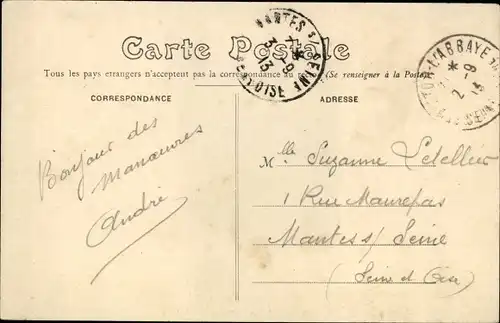 Carte Postale
Tous les pays etrangers n'acceptent pas la correspondance au recto. (Se renseigner à la Poste)
CORRESPONDANCE
ADRESSE
Bonjour des
Manœuvres
André
Mlle Suzanne Letellier
1 Rue Maurepas
Mantes s/ Seine
(Seine et Oise)
MANTES S/ SEINE
7 *
3 - 9
13
SEINE-ET-OISE
L'ABBAYE
*
2 - 9
13